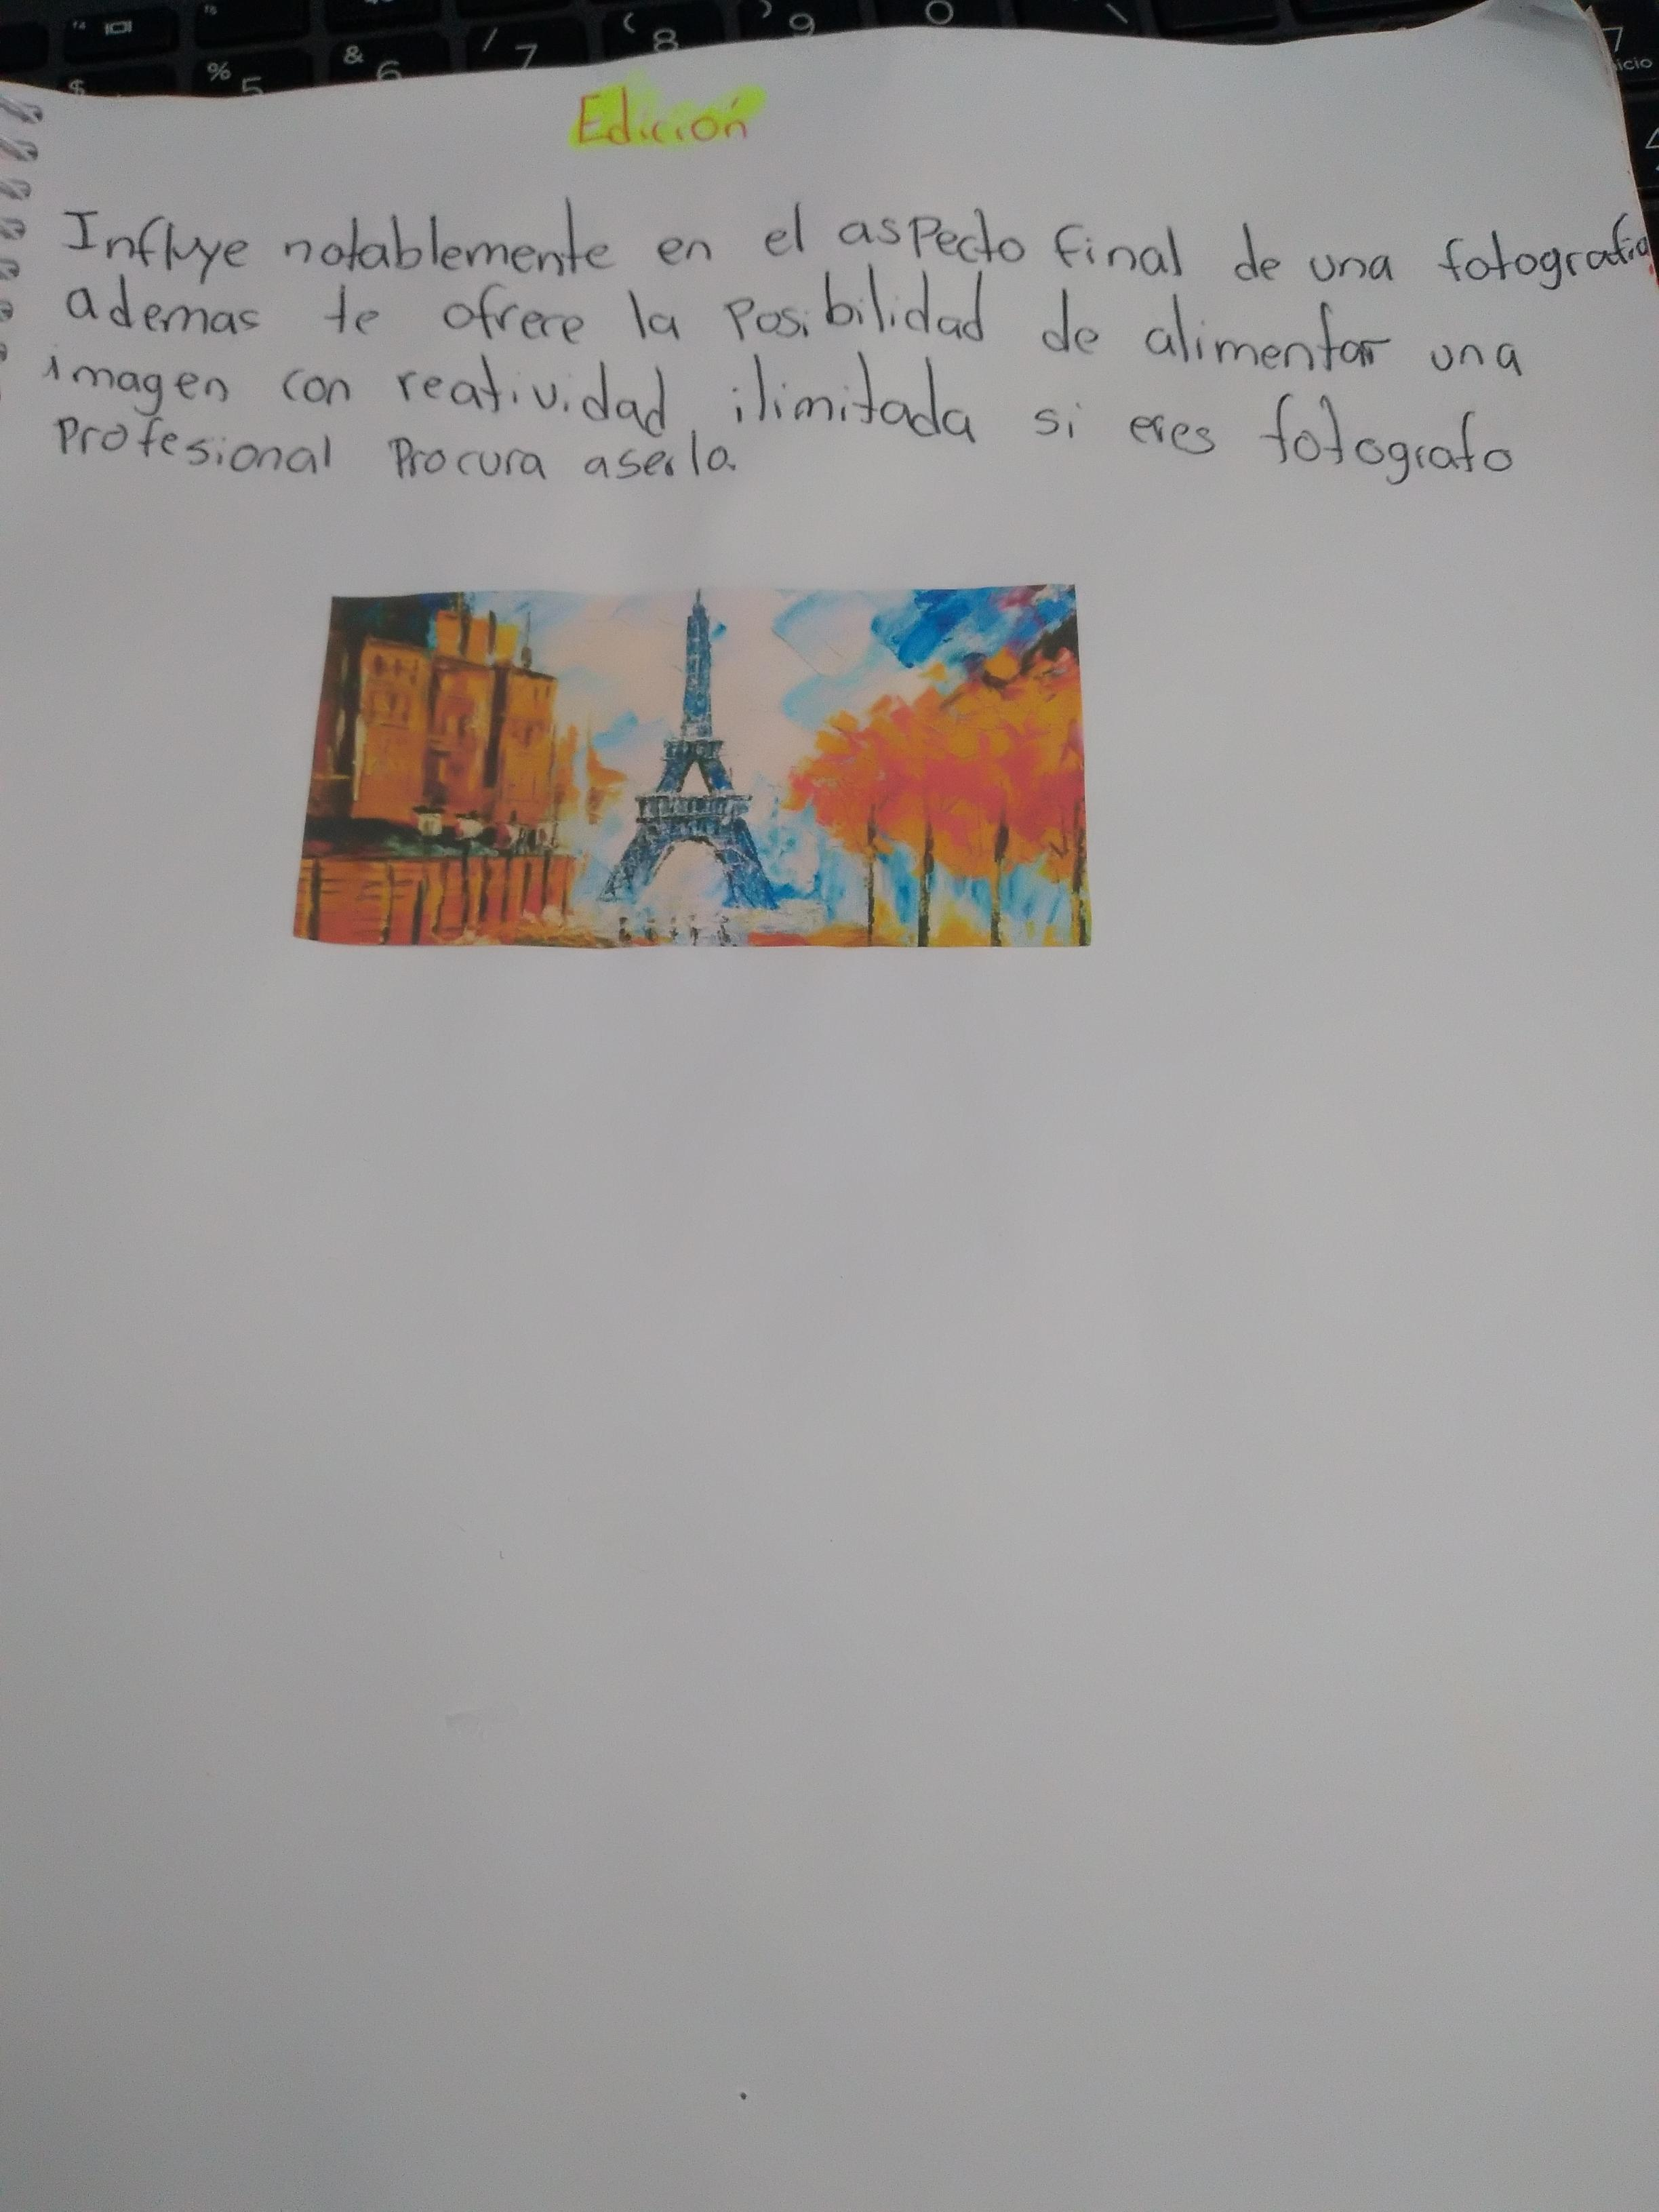 F4
F5
$
% 5
& 6
/ 7
( 8
) 9
0
\
7
icio
4
Edición
Influye notablemente en el aspecto final de una fotografia
ademas te ofrere la posibilidad de alimentar una
imagen con reatividad ilimitada si eres fotografo
Profesional Procura aserla.